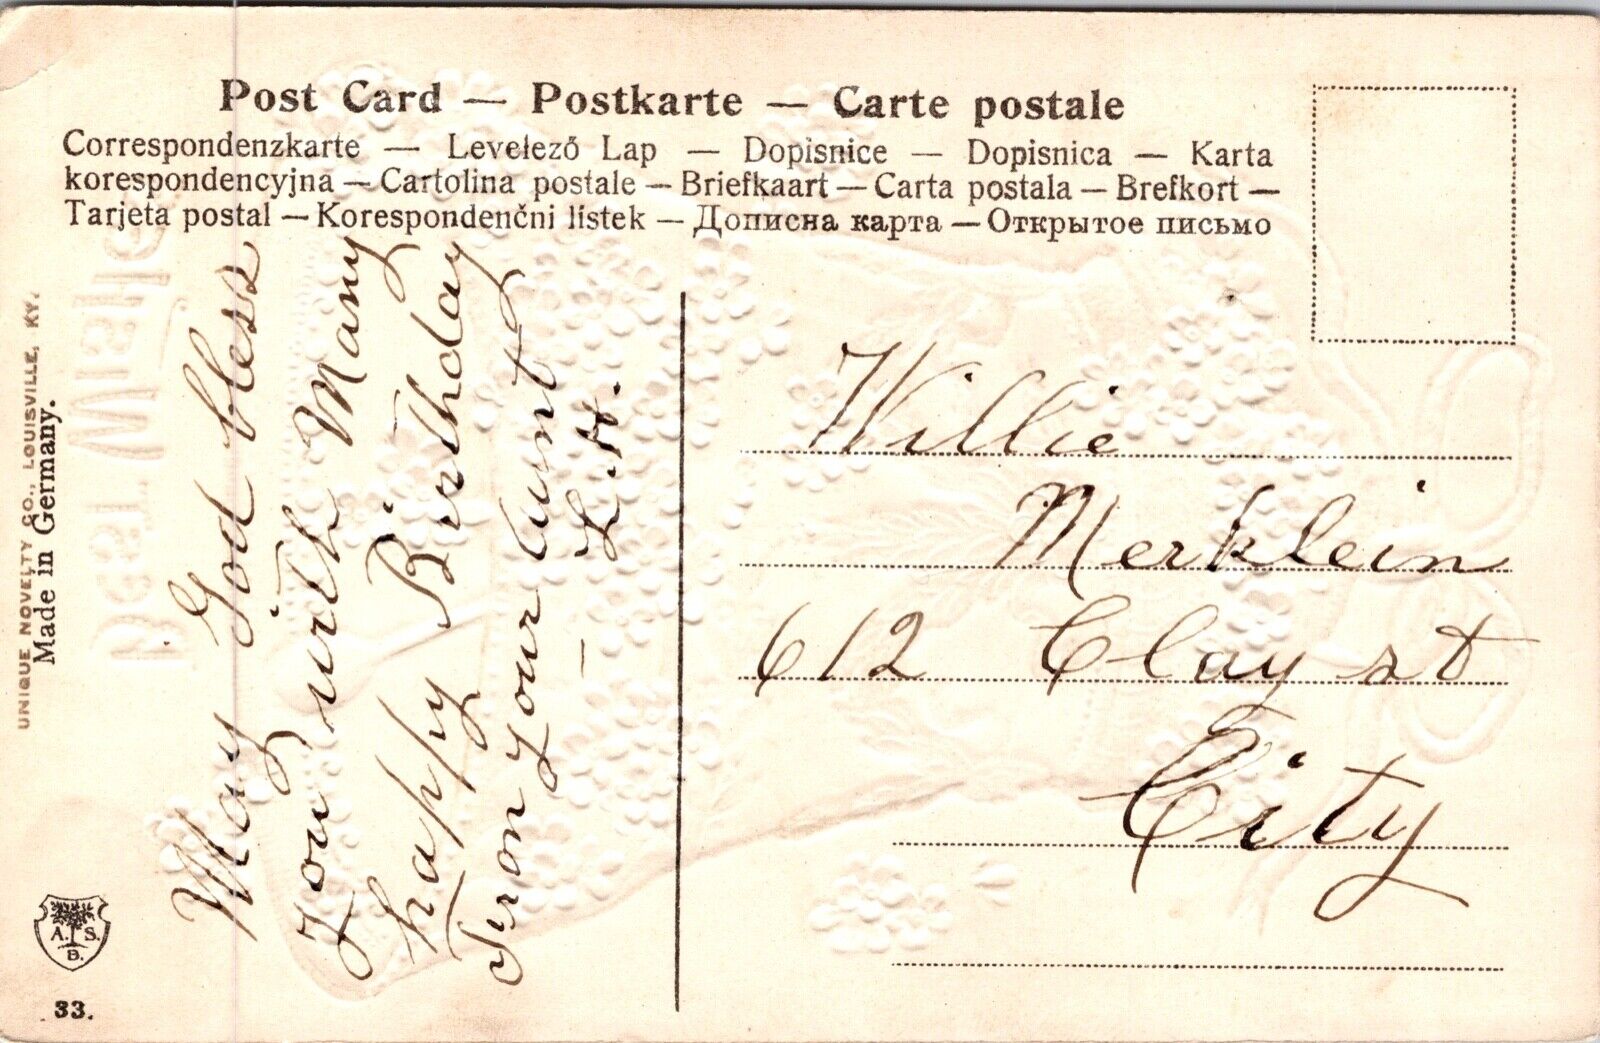 Post Card — Postkarte — Carte postale
Correspondenzkarte — Levelező Lap — Dopisnice — Dopisnica — Karta
korespondencyjna — Cartolina postale — Briefkaart — Carta postala — Brefkort —
Tarjeta postal — Korespondenčni listek — Дописна карта — Открытое письмо
UNIQUE NOVELTY CO., LOUISVILLE, KY.
Made in Germany.
May God bless
you with Many
happy Birthday
From your aunt
L. H.
Willie
Merklein
612 Clay st
City
A. S.
B.
33.